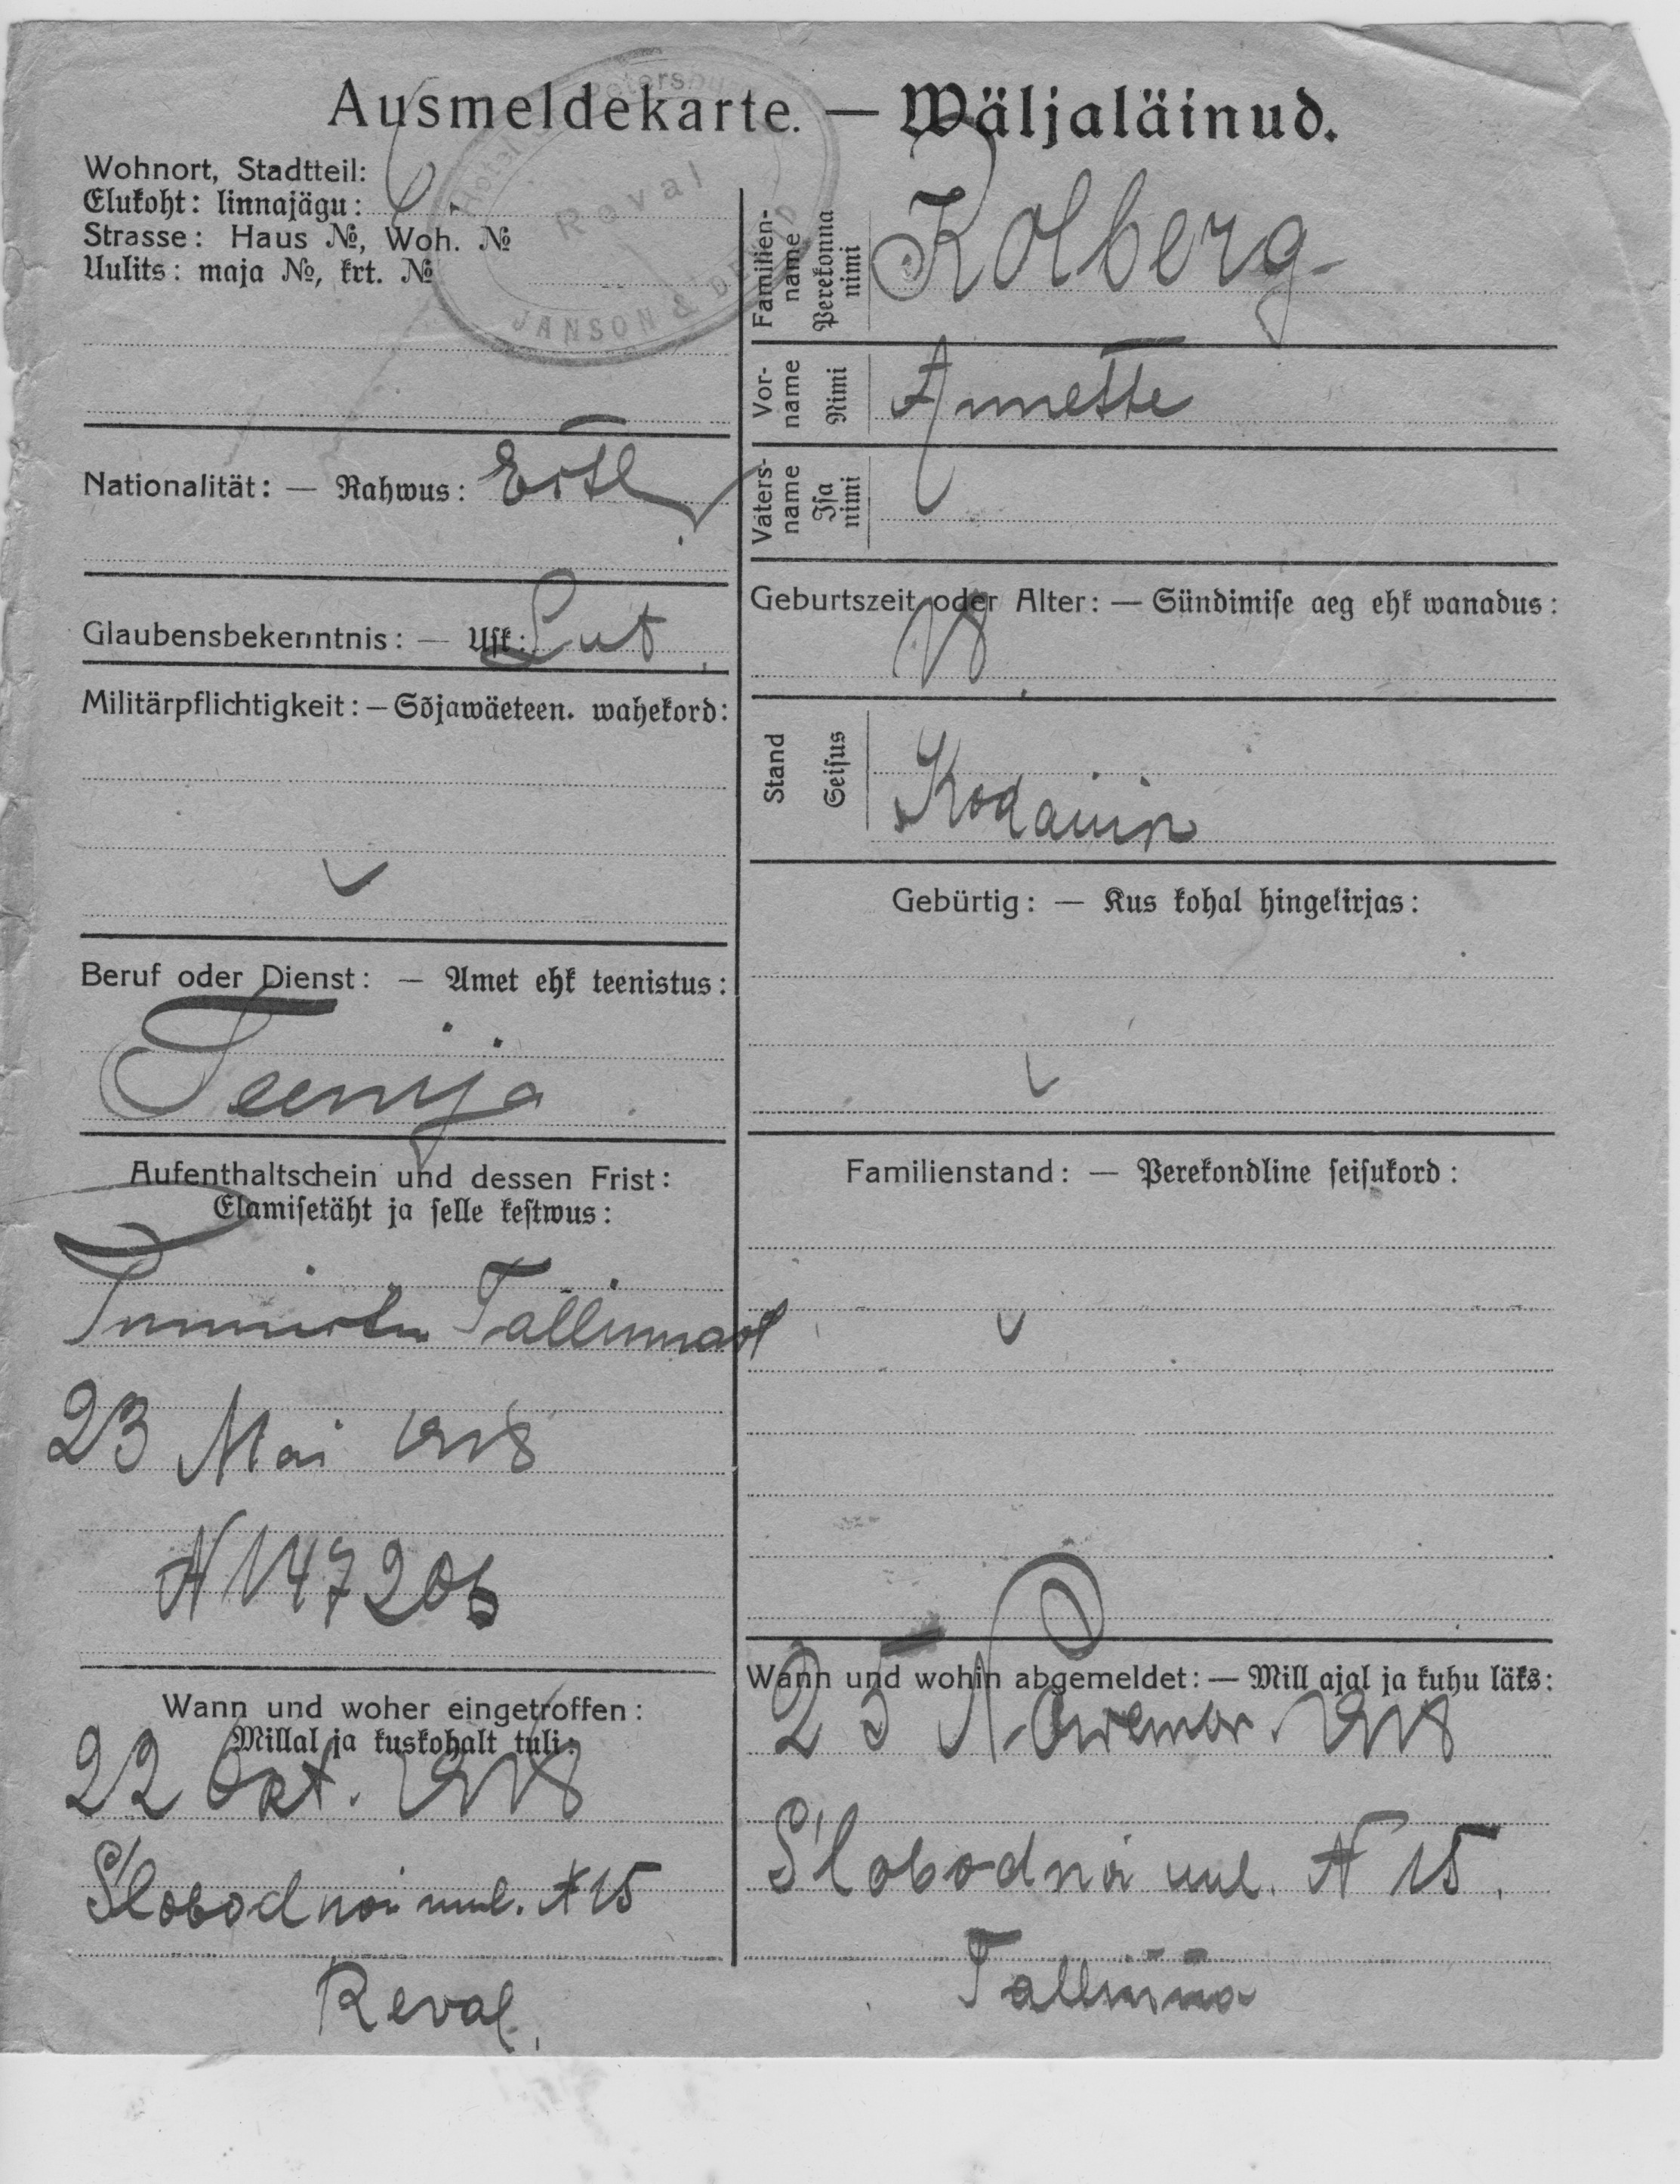 Ausmeldekarte. — Wäljaläinud.
Hotel Petersburg
Reval
JANSON &
Wohnort, Stadtteil:
Elukoht: linnajägu:
Strasse: Haus №, Woh. №
Uulits: maja №, krt. №
Nationalität: — Rahwus: Estl
Glaubensbekenntnis: — Usk: Lut.
Militärpflichtigkeit: — Sõjawäeteen. wahekord:
Beruf oder Dienst: — Amet ehk teenistus:
Teenija
Aufenthaltschein und dessen Frist:
Elamisetäht ja selle kestwus:
Tallinnast
23 Mai 1918
N 147206
Wann und woher eingetroffen:
Millal ja kuskohalt tuli:
22 Okt. 1918
Slobodnoi uul. N 15
Reval.
Familien-
name
Perekonna
nimi
Kolberg
Vor-
name
Nimi
Annette
Vaters-
name
Isa
nimi
Geburtszeit oder Alter: — Sündimise aeg ehk wanadus:
18.
Stand
Seisus
Gebürtig: — Kus kohal hingekirjas:
Familienstand: — Perekondline seisukord:
Wann und wohin abgemeldet: — Mill ajal ja kuhu läks:
25 1918
Slobodnoi uul. N 15.
Tallinna